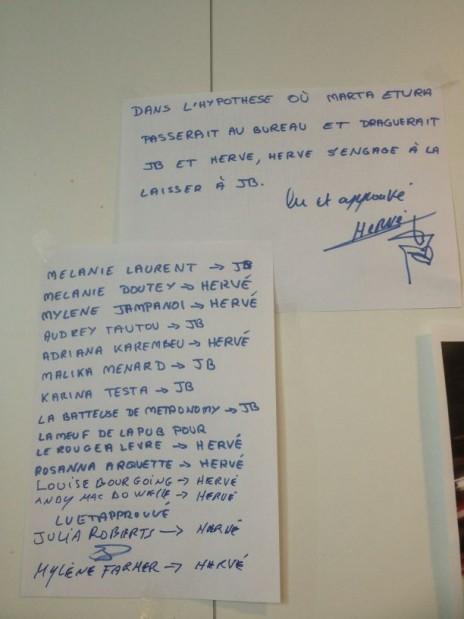 DANS L'HYPOTHESE OÙ MARTA ETURA
PASSERAIT AU BUREAU ET DRAGUERAIT
JB ET HERVE, HERVE S'ENGAGE À LA
LAISSER À JB.
lu et approuvé
HERVÉ
MELANIE LAURENT → JB
MELANIE DOUTEY → HERVÉ
MYLENE JAMPANOI → HERVÉ
AUDREY TAUTOU → JB
ADRIANA KAREMBEU → HERVÉ
MALIKA MENARD → JB
KARINA TESTA → JB
LA BATTEUSE DE METRONOMY → JB
LA MEUF DE LA PUB POUR
LE ROUGE A LEVRE → HERVÉ
ROSANNA ARQUETTE → HERVÉ
LOUISE BOURGOING → HERVÉ
ANDY MAC DO WELL → HERVÉ
LU ET APPROUVÉ
JULIA ROBERTS → HERVÉ
MYLÈNE FARMER → HERVÉ